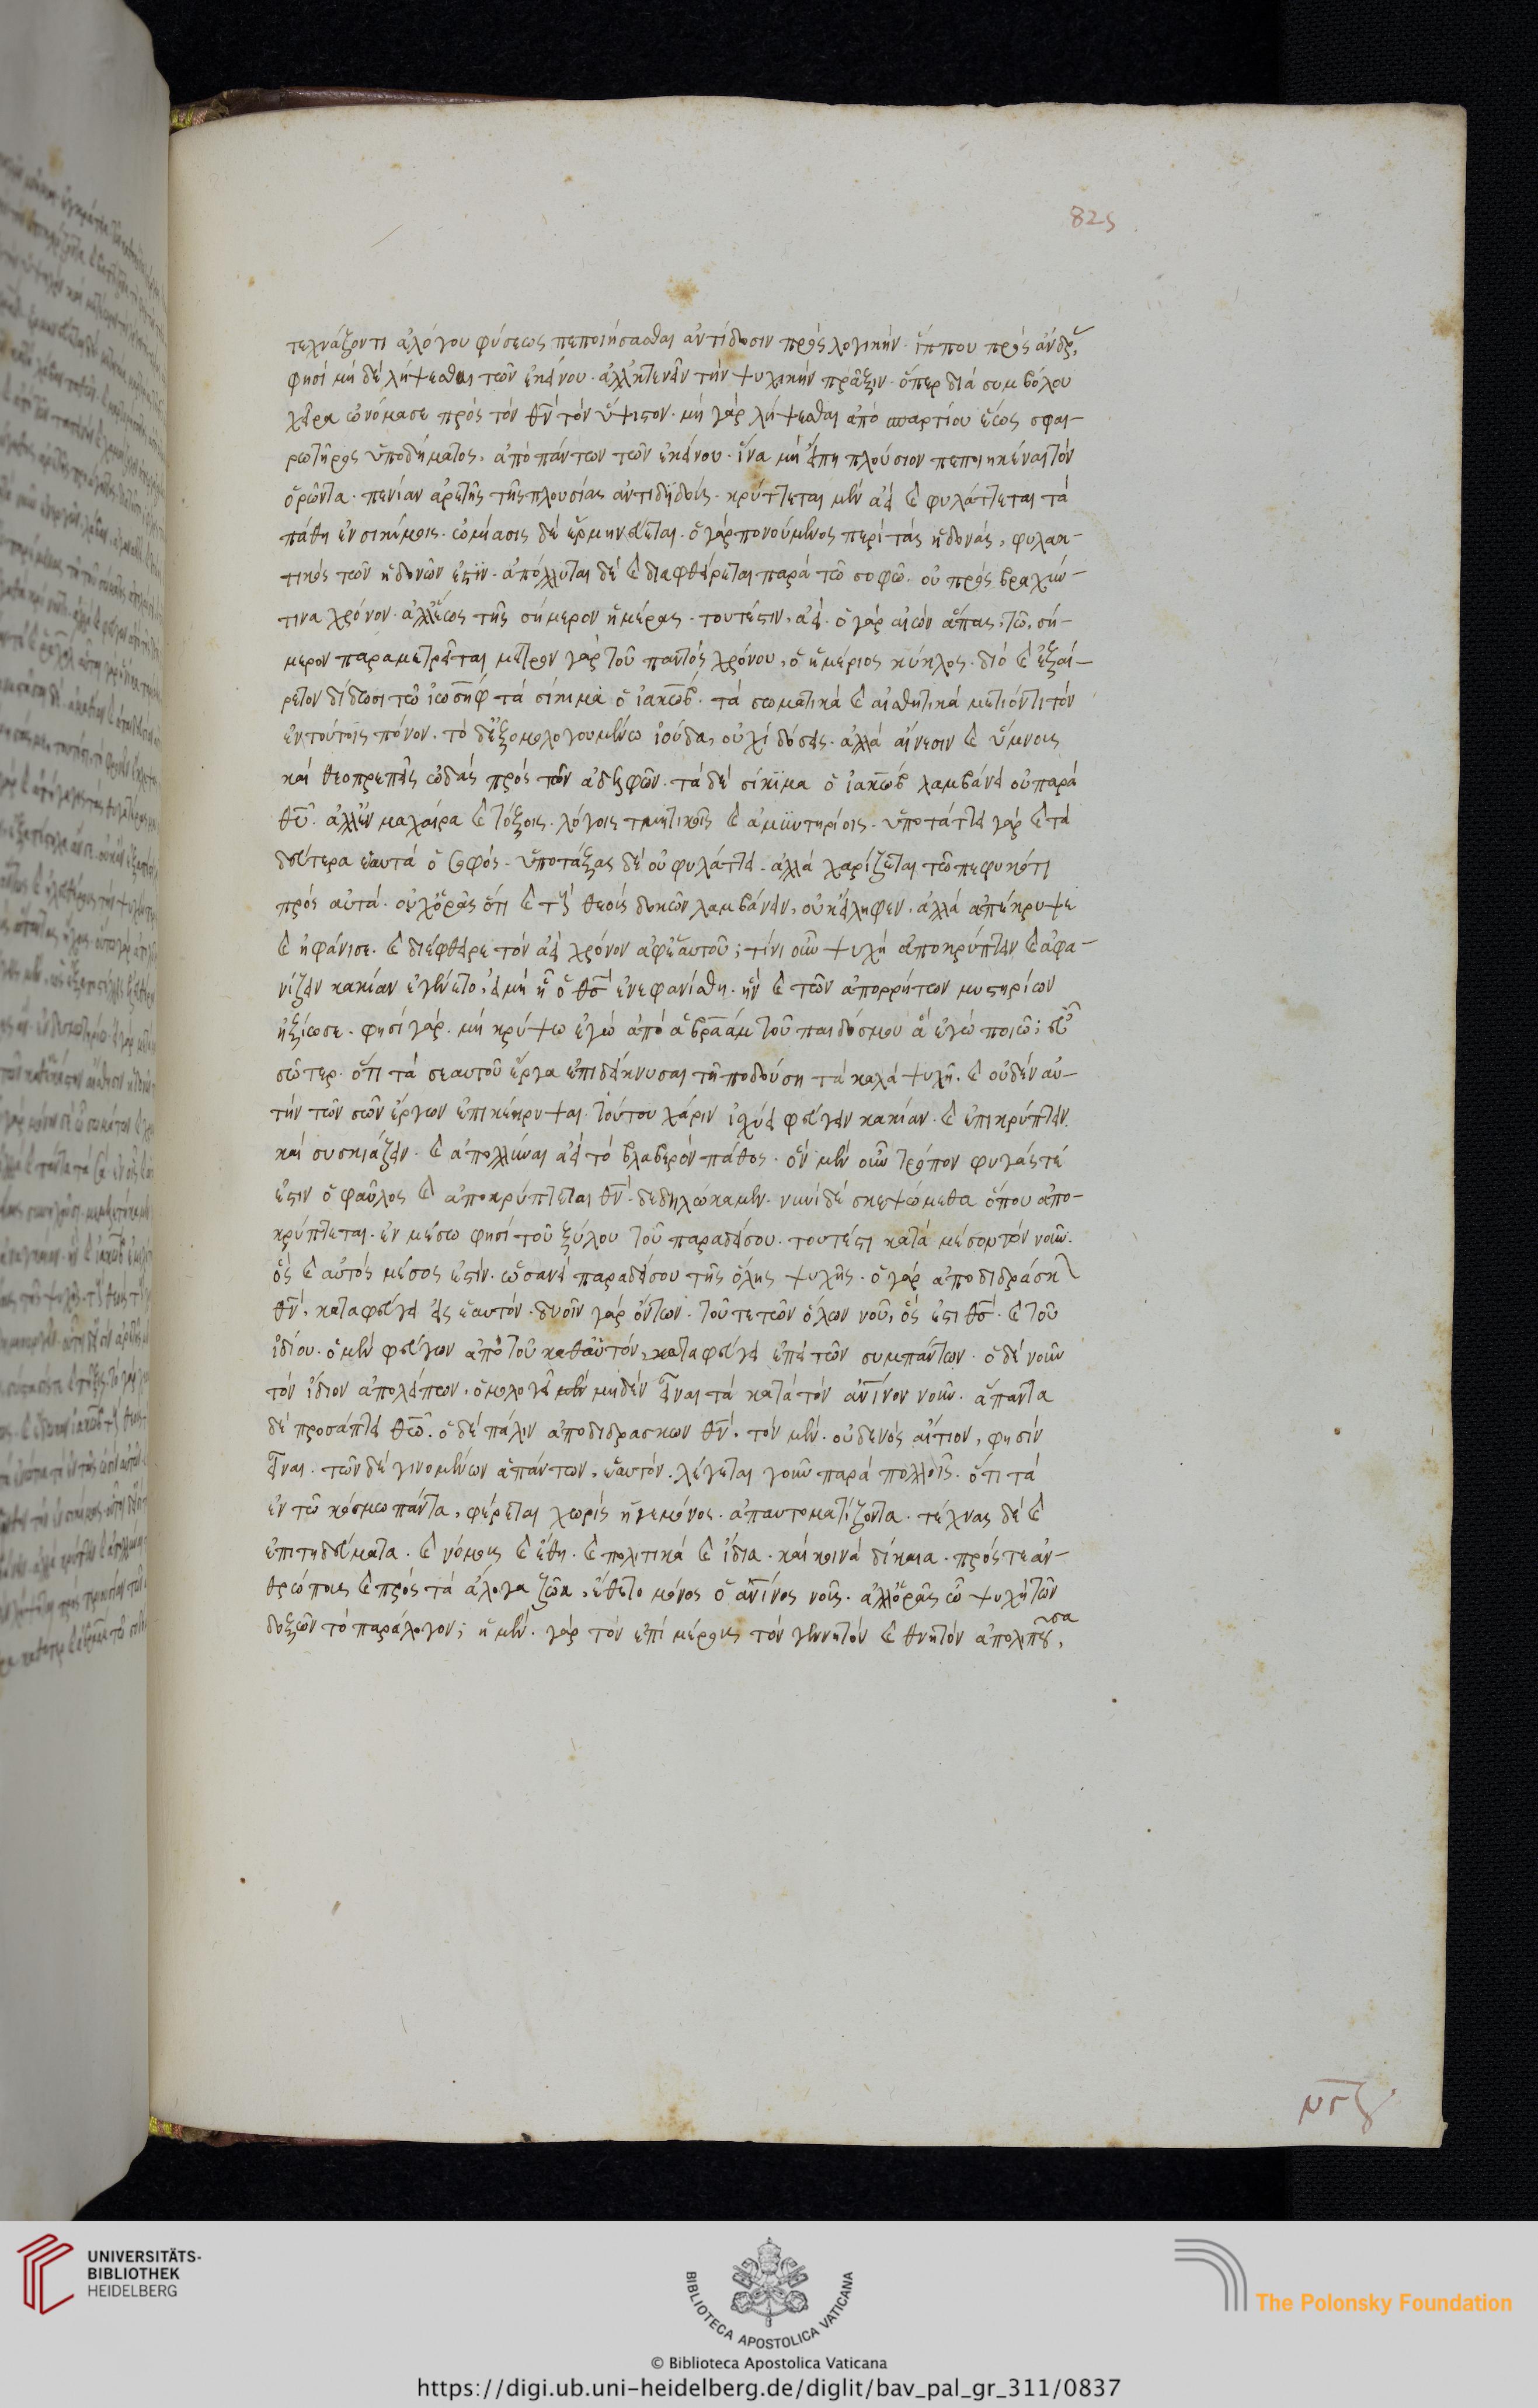 825
τεχνάζοντι ἀλόγου φύσεως πεποιήσασθαι ἀντίδοσιν πρὸς λογικήν. ἵππου πρὸς ἄνδρ
φησὶ μὴ δὲ λήψεσθαι τῶν ἐκείνου. ἀλλ' ἐκτενεῖν τὴν ψυχικὴν πρᾶξιν. ὅπερ διὰ συμβόλου
χεῖρα ὠνόμασε πρὸς τὸν θν̅ τὸν ὕψιστον. μὴ γὰρ λήψεσθαι ἀπὸ σπαρτίου ἕως σφαι-
ρωτῆρος ὑποδήματος. ἀπὸ πάντων τῶν ἐκείνου. ἵνα μὴ εἴπη πλούσιον πεποιηκέναι τὸν
ὁρῶντα. πενίαν ἀρετῆς τῆς πλουσίας ἀντιδιδούς. κρύπτεται μὲν ἀεὶ καὶ φυλάττεται τὰ
πάθη ἐν σικίμοις. ὠμίασις δὲ ἑρμηνεύεται. ὁ γὰρ πονούμενος περὶ τὰς ἡδονάς, φυλακ-
τικὸς τῶν ἡδονῶν ἐστὶν. ἀπόλλυται δὲ καὶ διαφθείρεται παρὰ τῶ σοφῶ. οὐ πρὸς βραχύν
τινα χρόνον. ἀλλ' ἕως τῆς σήμερον ἡμέρας. τουτέστιν, ἀεί. ὁ γὰρ αἰὼν ἅπας, τῶ, σή-
μερον παραμετρεῖται μέτρον γὰρ τοῦ παντὸς χρόνου, ὁ ἡμέριος κύκλος. διὸ καὶ ἐξαί-
ρετον δίδωσι τῶ ἰωσὴφ τὰ σίκιμα ὁ ἰακώβ. τὰ σωματικὰ καὶ αἰσθητικὰ μετιόντι τὸν
ἐν τούτοις πόνον. τὸ δ' ἐξομολογουμένω ἰούδα, οὐχὶ δόσεις. ἀλλὰ αἴνεσιν καὶ ὕμνους
καὶ θεοπρεπεῖς ὠδὰς πρὸς τῶν ἀδελφῶν. τὰ δὲ σίκιμα ὁ ἰακὼβ λαμβάνει οὐ παρὰ
θυ̅. ἀλλ' ἐν μαχαίρα καὶ τόξοις. λόγοις τμητικοῖς καὶ ἀμυντηρίοις. ὑποτάττει γὰρ καὶ τὰ
δεύτερα ἑαυτὰ ὁ σοφός. ὑποτάξας δὲ οὐ φυλάττει. ἀλλὰ χαρίζεται τῶ πεφυκότι
πρὸς αὐτά. οὐχ ὁρᾶς ὅτι καὶ τοὺς θεοὺς δοκῶν λαμβάνειν, οὐκ εἴληφεν, ἀλλὰ ἀπέκρυψε
καὶ ἠφάνισε. καὶ διέφθειρε τὸν ἀεὶ χρόνον ἀφ' ἑαυτοῦ; τίνι οὖν ψυχῆ ἀποκρύπτειν καὶ ἀφα-
νίζειν κακίαν ἐγένετο, εἰ μὴ ἧ ὁ θσ̅ ἐνεφανίσθη. ἣν καὶ τῶν ἀπορρήτων μυστηρίων
ἠξίωσε. φησὶ γάρ. μὴ κρύψω ἐγὼ ἀπὸ ἁβραὰμ τοῦ παιδός μου ἃ ἐγὼ ποιῶ; εὖ
σῶτερ. ὅτι τὰ σεαυτοῦ ἔργα ἐπιδείκνυσαι τῆ ποθούση τὰ καλὰ ψυχῆ. καὶ οὐδὲν αὐ-
τὴν τῶν σῶν ἔργων ἐπικέκρυψαι. τούτου χάριν ἰσχύει φεύγειν κακίαν. καὶ ἐπικρύπτειν
καὶ συσκιάζειν. καὶ ἀπολλύναι ἀεὶ τὸ βλαβερὸν πάθος. ὃν μὲν οὖν τρόπον φυγάς τέ
ἐστιν ὁ φαῦλος καὶ ἀποκρύπτεται θν̅. δεδηλώκαμεν. νυνὶ δὲ σκεψώμεθα ὅπου ἀπο-
κρύπτεται. ἐν μέσω φησὶ τοῦ ξύλου τοῦ παραδείσου. τουτέστι κατὰ μέσον τὸν νοῦν.
ὃς καὶ αὐτὸς μέσος ἐστὶν. ὡσανεὶ παραδείσου τῆς ὅλης ψυχῆς. ὁ γὰρ ἀποδιδράσκ
θν̅. καταφεύγει εἰς ἑαυτόν. δυοῖν γὰρ ὄντων. τοῦ τε τῶν ὅλων νοῦ, ὅς ἐστι θσ̅. καὶ τοῦ
ἰδίου. ὁ μὲν φεύγων ἀπὸ τοῦ καθ' αὑτὸν, καταφεύγει ἐπὶ τῶν συμπάντων. ὁ δὲ νοῦν
τὸν ἴδιον ἀπολείπων. ὁμολογεῖ μὲν μηδὲν εἶναι τὰ κατὰ τὸν ἀν̅ίνον νοῦν. ἅπαντα
δὲ προσάπτει θεῶ. ὁ δὲ πάλιν ἀποδιδράσκων θν̅. τὸν μὲν. οὐδενὸς αἴτιον, φησὶν
εἶναι. τῶν δὲ γινομένων ἁπάντων, ἑαυτόν. λέγεται γοῦν παρὰ πολλοῖς. ὅτι τὰ
ἐν τῶ κόσμω πάντα, φέρεται χωρὶς ἡγεμόνος. ἀπαυτοματίζοντα. τέχνας δὲ καὶ
ἐπιτηδεύματα. καὶ νόμους καὶ ἔθη. καὶ πολιτικὰ καὶ ἴδια. καὶ κοινὰ δίκαια. πρός τε ἀν-
θρώπους καὶ πρὸς τὰ ἄλογα ζῶα, ἔθετο μόνος ὁ ἀν̅ίνος νοῦς. ἀλλ' ὁρᾶς ὦ ψυχὴ τῶν
δοξῶν τὸ παράλογον; ἡ μὲν. γὰρ τὸν ἐπὶ μέρους τὸν γεννητὸν καὶ θνητὸν ἀπολιποῦσα,
UNIVERSITÄTS-
BIBLIOTHEK
HEIDELBERG
BIBLIOTECA APOSTOLICA VATICANA
The Polonsky Foundation
© Biblioteca Apostolica Vaticana
https://digi.ub.uni-heidelberg.de/diglit/bav_pal_gr_311/0837